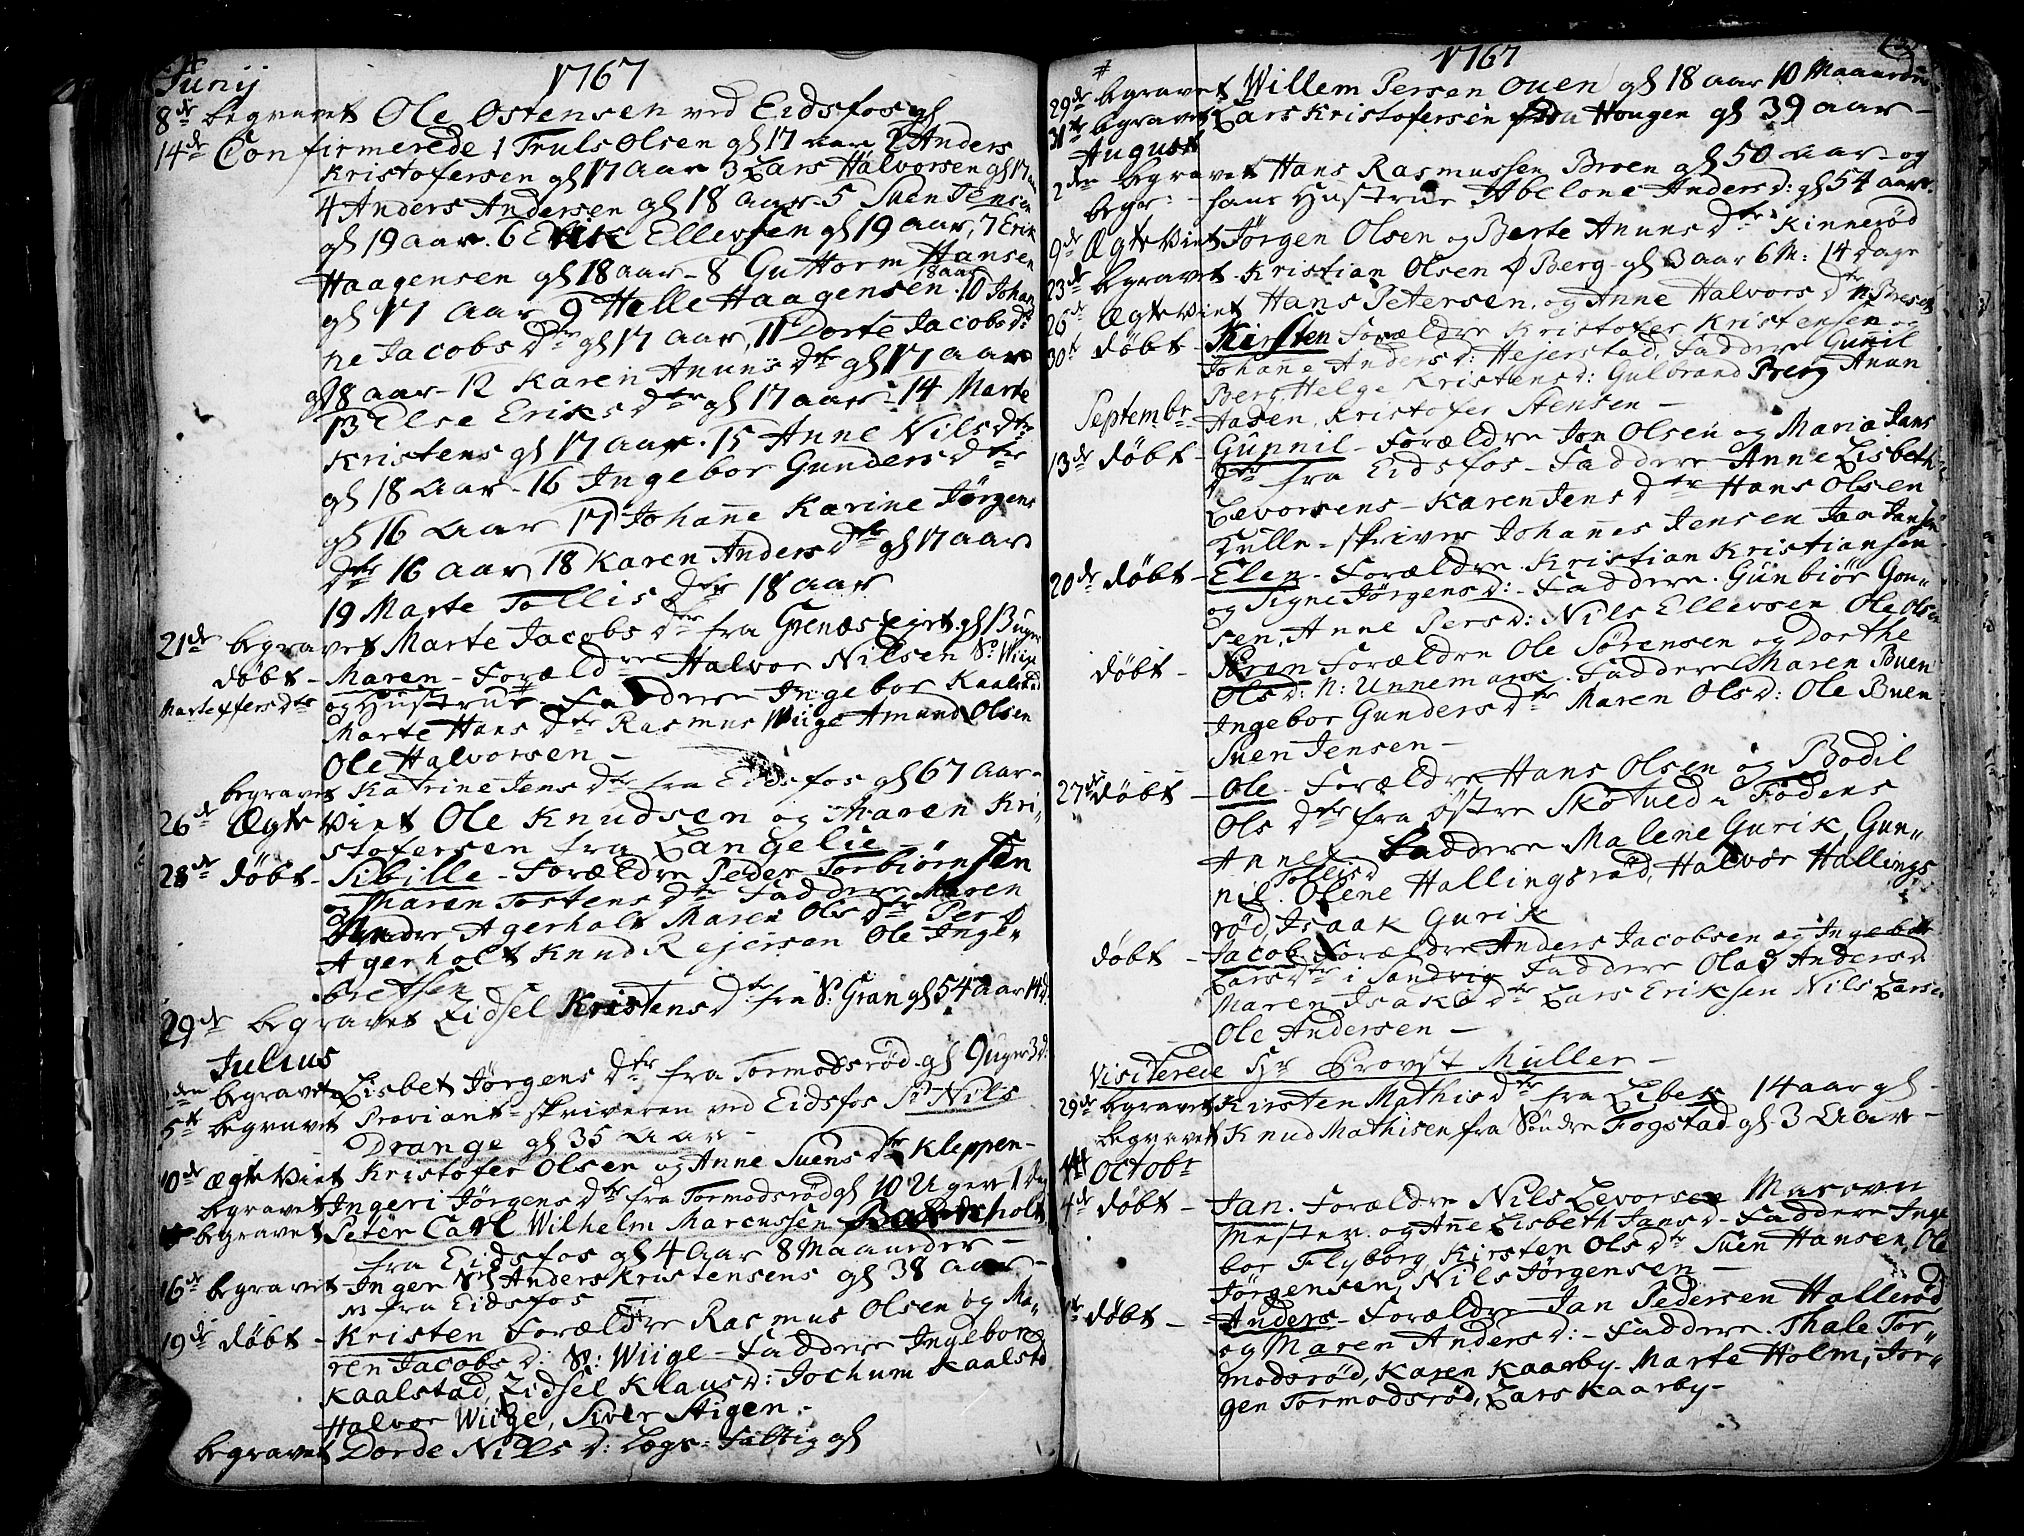 Junij 1767
8de begravet Ole Ostensen ved Eidsfos gl
14de Confirmerede 1 Truls Olsen gl 17 aar 2 Anders
Kristofersen gl 17 aar 3 Lars Halvorsen gl 17 aar
4 Anders Andersen gl 18 aar 5 Suen Jensen
gl 19 aar. 6 Erik Ellevsen gl 19 aar, 7 Erik
Haagensen gl 18 aar - 8 Guttorm Hansen
gl 17 aar 9 Helle Haagensen 18 aar 10 Johan
ne Jacobs dtr gl 17 aar, 11 Dorte Jacobs dr
gl 18 aar - 12 Karen Anuns dtr gl 17 aar
13 Else Eriks dtr gl 17 aar - 14 Marte
Kristens gl 17 aar. 15 Anne Nils dtr
gl 18 aar - 16 Ingebor Gunders dtr
gl 16 aar 17 Johanne Karine Jörgens
dtr 16 aar 18 Karen Anders dtr gl 17 aar
19 Marte Tollis dtr 18 aar
21de begravet Marte Jacobs dtr fra Grenæs Eiet gl 13 uger
døbt - Maren - Forældre Halvor Nilsen S: Wiige
Marte dtr og Hustrue - Faddere Ingebor Kaalstad
Marte Hans dtr Rasmus Wiige Amund Olsen
Ole Halvorsen -
begravet Katrine Jens dtr fra Eidsfos gl 67 aar -
26de Ægte Viet Ole Knudsen og Maren Kri,
stofersen fra Langelie
28de døbt - Sibille - Forældre Peder Torbiørnsen
og Maren Tostens dtr Faddere Maren
Agerholt Maren Ols dtr Per
Agerholt Knud Rejersen Ole Inge,,
bretsen
29de begravet Lidsel Kristens dtr fra S: Gran gl 54 Aar 14 d.
Julius
den begravet Lisbet Jörgens dtr fra Tormodsrød gl 9 uger 3 d:
5t begravet Proviant-skriveren ved Eidsfos Sr Nils
Drange gl 35 aar -
10de Ægte Viet Kristofer Olsen og Anne Suens dtr Kleppen -
begravet Ingeri Jörgens dtr fra Tormodsrød gl 10 Uger 1 dag
begravet Peter Carl Wilhelm Marcussen
fra Eidsfos gl 4 Aar 8 Maaneder -
16de begravet Inger Anders Kristensens gl 38 aar -
fra Eidsfos
19de døbt - Kristen Forældre Rasmus Olsen og Ma,,
ren Jacobs d: S: Wiige - Faddere Ingebor
Kaalstad, Lidsel Klaus d: Jochum Kaalstad
Halvor Wiige, Siver Stigen -
begravet Dorde Nills d: Legs- Fattig gl
1767
29de begravet Willem Persen Ouen gl 18 aar 10 Maaneder
31te begravet Lars Kristofersen fra Hougen gl 39 aar -
August
2den begravet Hans Rasmussen Broen gl 50 aar - og
begr: - hans Hustrue Abelone Anders d: gl 54 aar
9de Ægte Viet Jörgen Olsen og Berte Anuns dtr Kinnerød
23de begravet - Kristian Olsen Ø Berg - gl 3 aar 6 M: 14 dage
26de Ægte Viet Hans Petersen og Anne Halvors dtr N: Bresen
30te døbt - Kirsten Forældre Kristofer Kristensen og
Johane Anders d: Hejerstad, Faddere Gunil
Berg, Helge Kristens d: Gulbrand Berg Anun
Septembr Aasen, Kristofer Stensen -
13de døbt - Gunnil - Forældre Jon Olsen og Maria Jans
dtr fra Eidsfos - Faddere Anne Lisbeth
Levorsens - Karen Jens dtr Hans Olsen
Hulle-skriver Johannes Jensen Jan Jansen
20de døbt - Elen - Forældre Kristian Kristiansen
og Signe Jörgens d: - Faddere. Gunbiör Gon,,
sen, Anne Pers d: Nils Ellevsen Ole Olsen
døbt - Søren Forældre Ole Sørensen og Dorthe
Ols d: N: Unnemark. Faddere Maren Buen
Ingebor Gunders dtr Maren Ols d: Ole Buen
Suen Jensen -
27de døbt - Ole - Forældre Hans Olsen og Bodil
Ols dtr fra Østre Skotued - Fødens
Anne Tollis d Faddere Malene Gurik, Gun,,
nil. Olene Hallingsrød, Halvor Hallings
rød, Isaak Gurik
døbt - Jacob Forældre Anders Jacobsen og Ingebor
Lars dtr i Sandvig Faddere Olea Anders d
Maren Isaks dtr Lars Eriksen Nils Larsen
Ole Andersen -
Visiterede Hr Provst Müller -
29de begravet Kirsten Mathis dtr fra Libek 14 aar gl -
begravet Knud Mathisen fra Søndre Fogstad gl 3 Aar -
Octobr
4de døbt - Jan. Forældre Nils Levorsen Masovn
Mester og Anne Lisbeth Jans d - Faddere Inge
bor Flyborg Kirsten Ols dtr Suen Hansen, Ole
Jörgensen, Nils Jörgensen -
døbt - Anders - Forældre Jan Pedersen Hallerød
og Maren Anders d: - Faddere. Thale Tor,,
modsrød, Karen Kaarby - Marte Holm, Jör,,
gen Tormodsrød, Lars Kaarby -